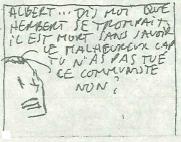 ALBERT... DIS MOI QUE
HERBERT SE TROMPAIT,
IL EST MORT SANS SAVOIR
LE MALHEUREUX CAR
TU N'AS PAS TUÉ
CE COMMUNISTE
NON?